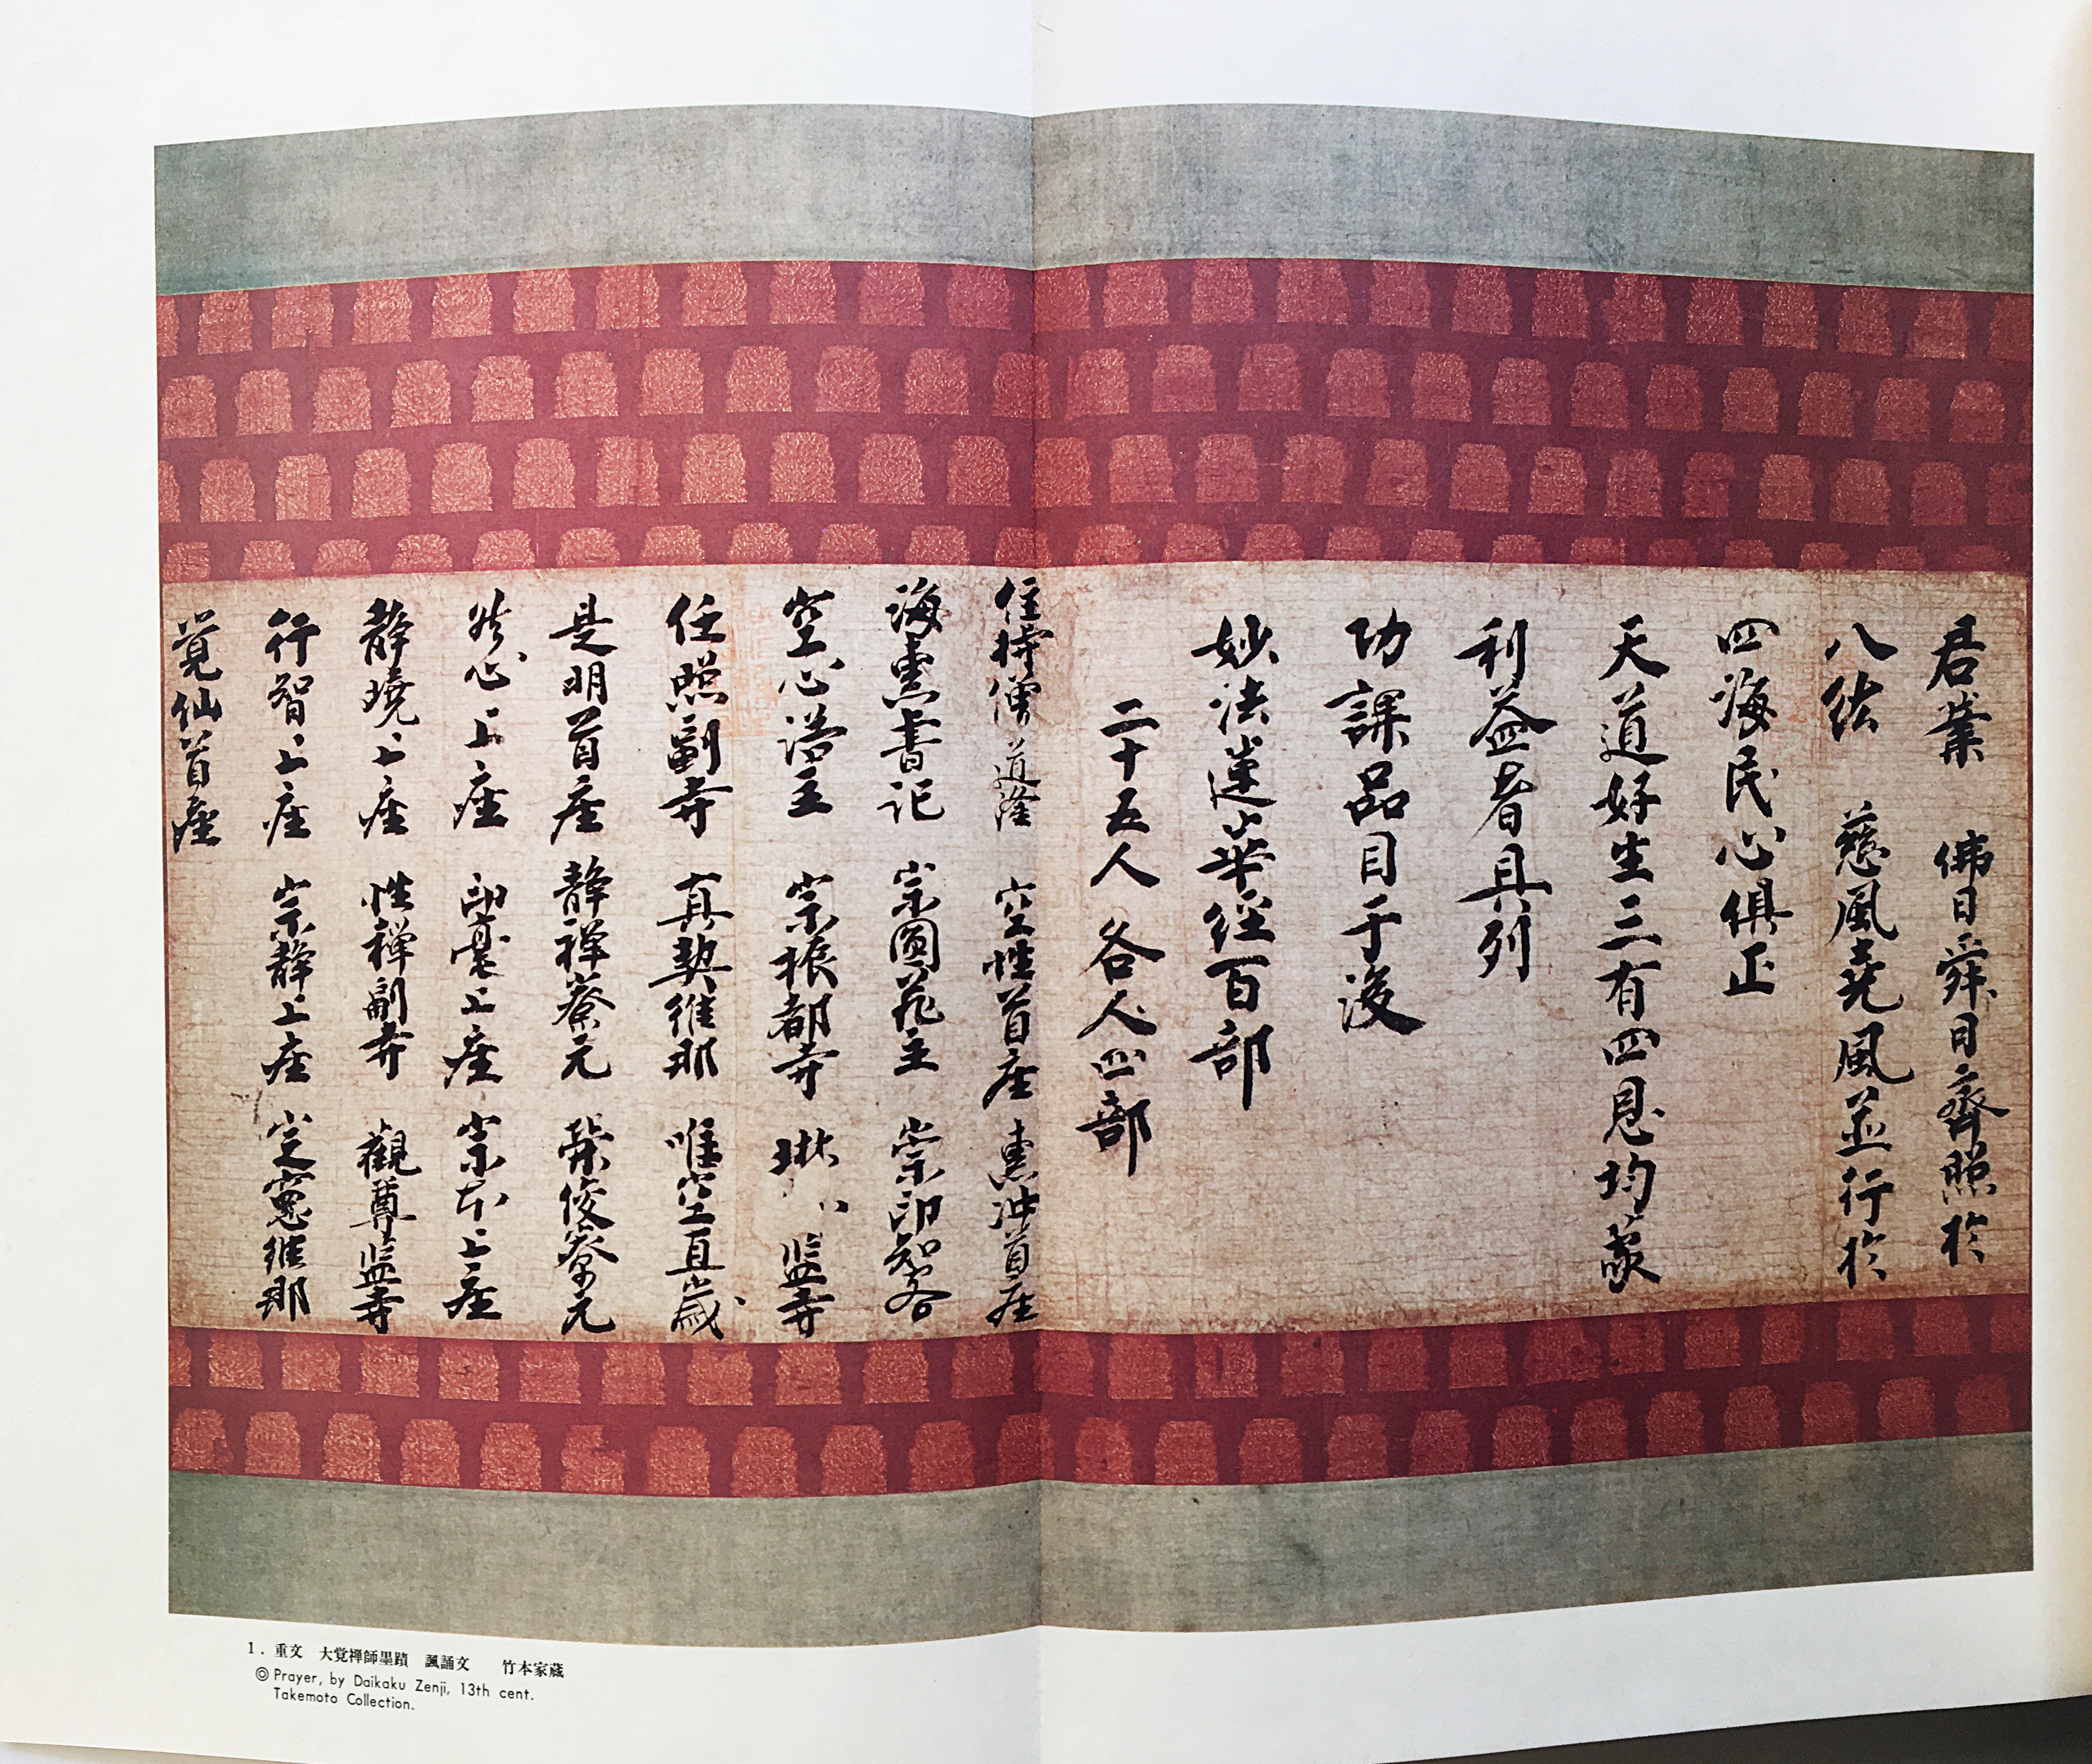 君業　佛日舜日齊照於
八紘　慈風堯風並行於
四海民心俱正
天道好生三有四恩均蒙
利益者具列
功課品目于後
妙法蓮華經百部
二十五人　各人四部
住持僧道隆　空性首座　惠沖首座
海惠書記　宗圓蔵主　崇印知客
空心浴主　宗振都寺　琳　監寺
任照副寺　真契維那　唯空直歳
是明首座　静禅寮元　榮俊寮元
然心上座　印憲上座　宗本上座
静曉上座　性禅副寺　觀尊監寺
行智上座　宗静上座　定憲維那
覚仙首座
1. 重文　大覚禅師墨蹟　諷誦文　竹本家蔵
© Prayer, by Daikaku Zenji, 13th cent.
Takemoto Collection.